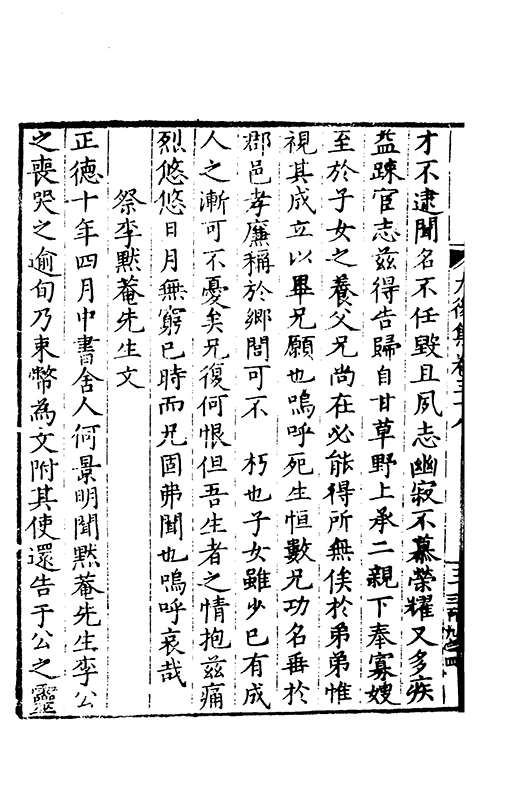 才不逮聞名不任毀且夙志幽寂不慕榮耀又多疾
益踈宦志兹得告歸自甘草野上承二親下奉寡嫂
至於子女之養父兄尚在必能得所無俟於弟弟惟
視其成立以畢兄願也嗚呼死生恒數兄功名垂於
郡邑孝廉稱於鄉閭可不 朽也子女雖少已有成
人之漸可不憂矣兄復何恨但吾生者之情抱兹痛
烈悠悠日月無窮已時而兄固弗聞也嗚呼哀哉
祭李默菴先生文
正德十年四月中書舍人何景明聞默菴先生李公
之喪哭之逾旬乃束幣為文附其使還告于公之靈